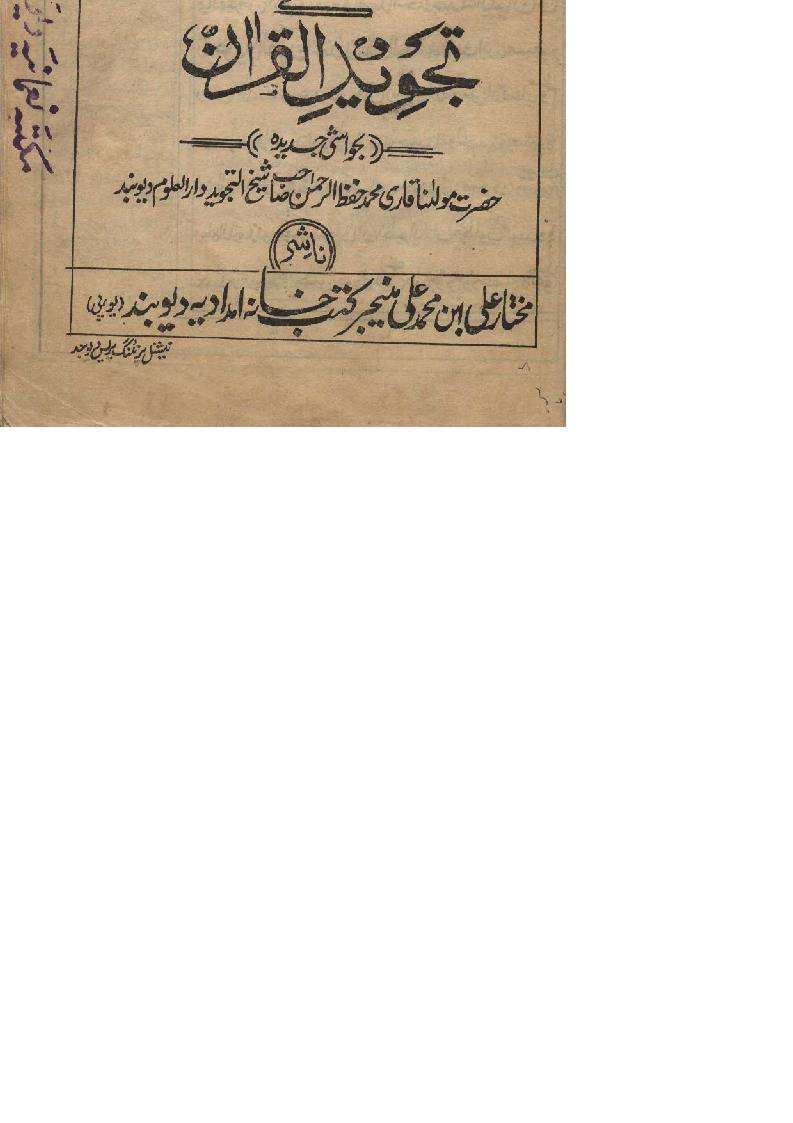 تجوید القرآن
(بحواشی جدیدہ)
حضرت مولٰنا قاری محمد حفظ الرحمن صاحب شیخ التجوید دارالعلوم دیوبند
ناشر
مختار علی ابن محمد علی منیجر کتب خانہ امدادیہ دیوبند (یوپی)
نیشنل پرنٹنگ پریس دیوبند
مکتبہ نعمانیہ